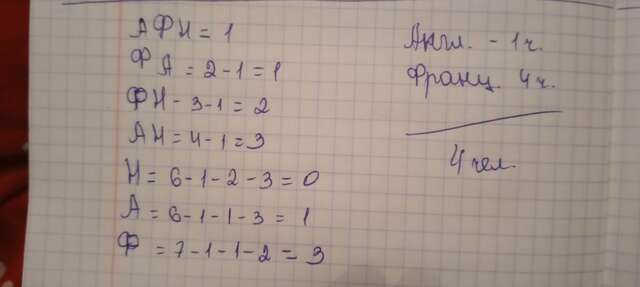 АФН = 1
ФА = 2-1 = 1
ФН - 3-1 = 2
АН = 4-1 = 3
Н = 6-1-2-3 = 0
А = 6-1-1-3 = 1
Ф = 7-1-1-2 = 3
Англ. - 1 ч.
Франц. 4 ч.
4 чел.